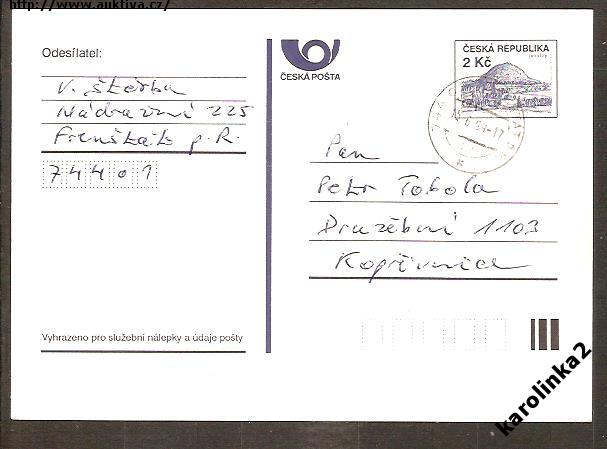 http://www.auktiva.cz/
Odesílatel:
V. Štěrba
Nádražní 225
Frenštát p. R.
74401
Vyhrazeno pro služební nálepky a údaje pošty
ČESKÁ POŠTA
ČESKÁ REPUBLIKA
2 Kč
Pan
Petr Tobola
Družební 1103
Kopřivnice
karolinka2